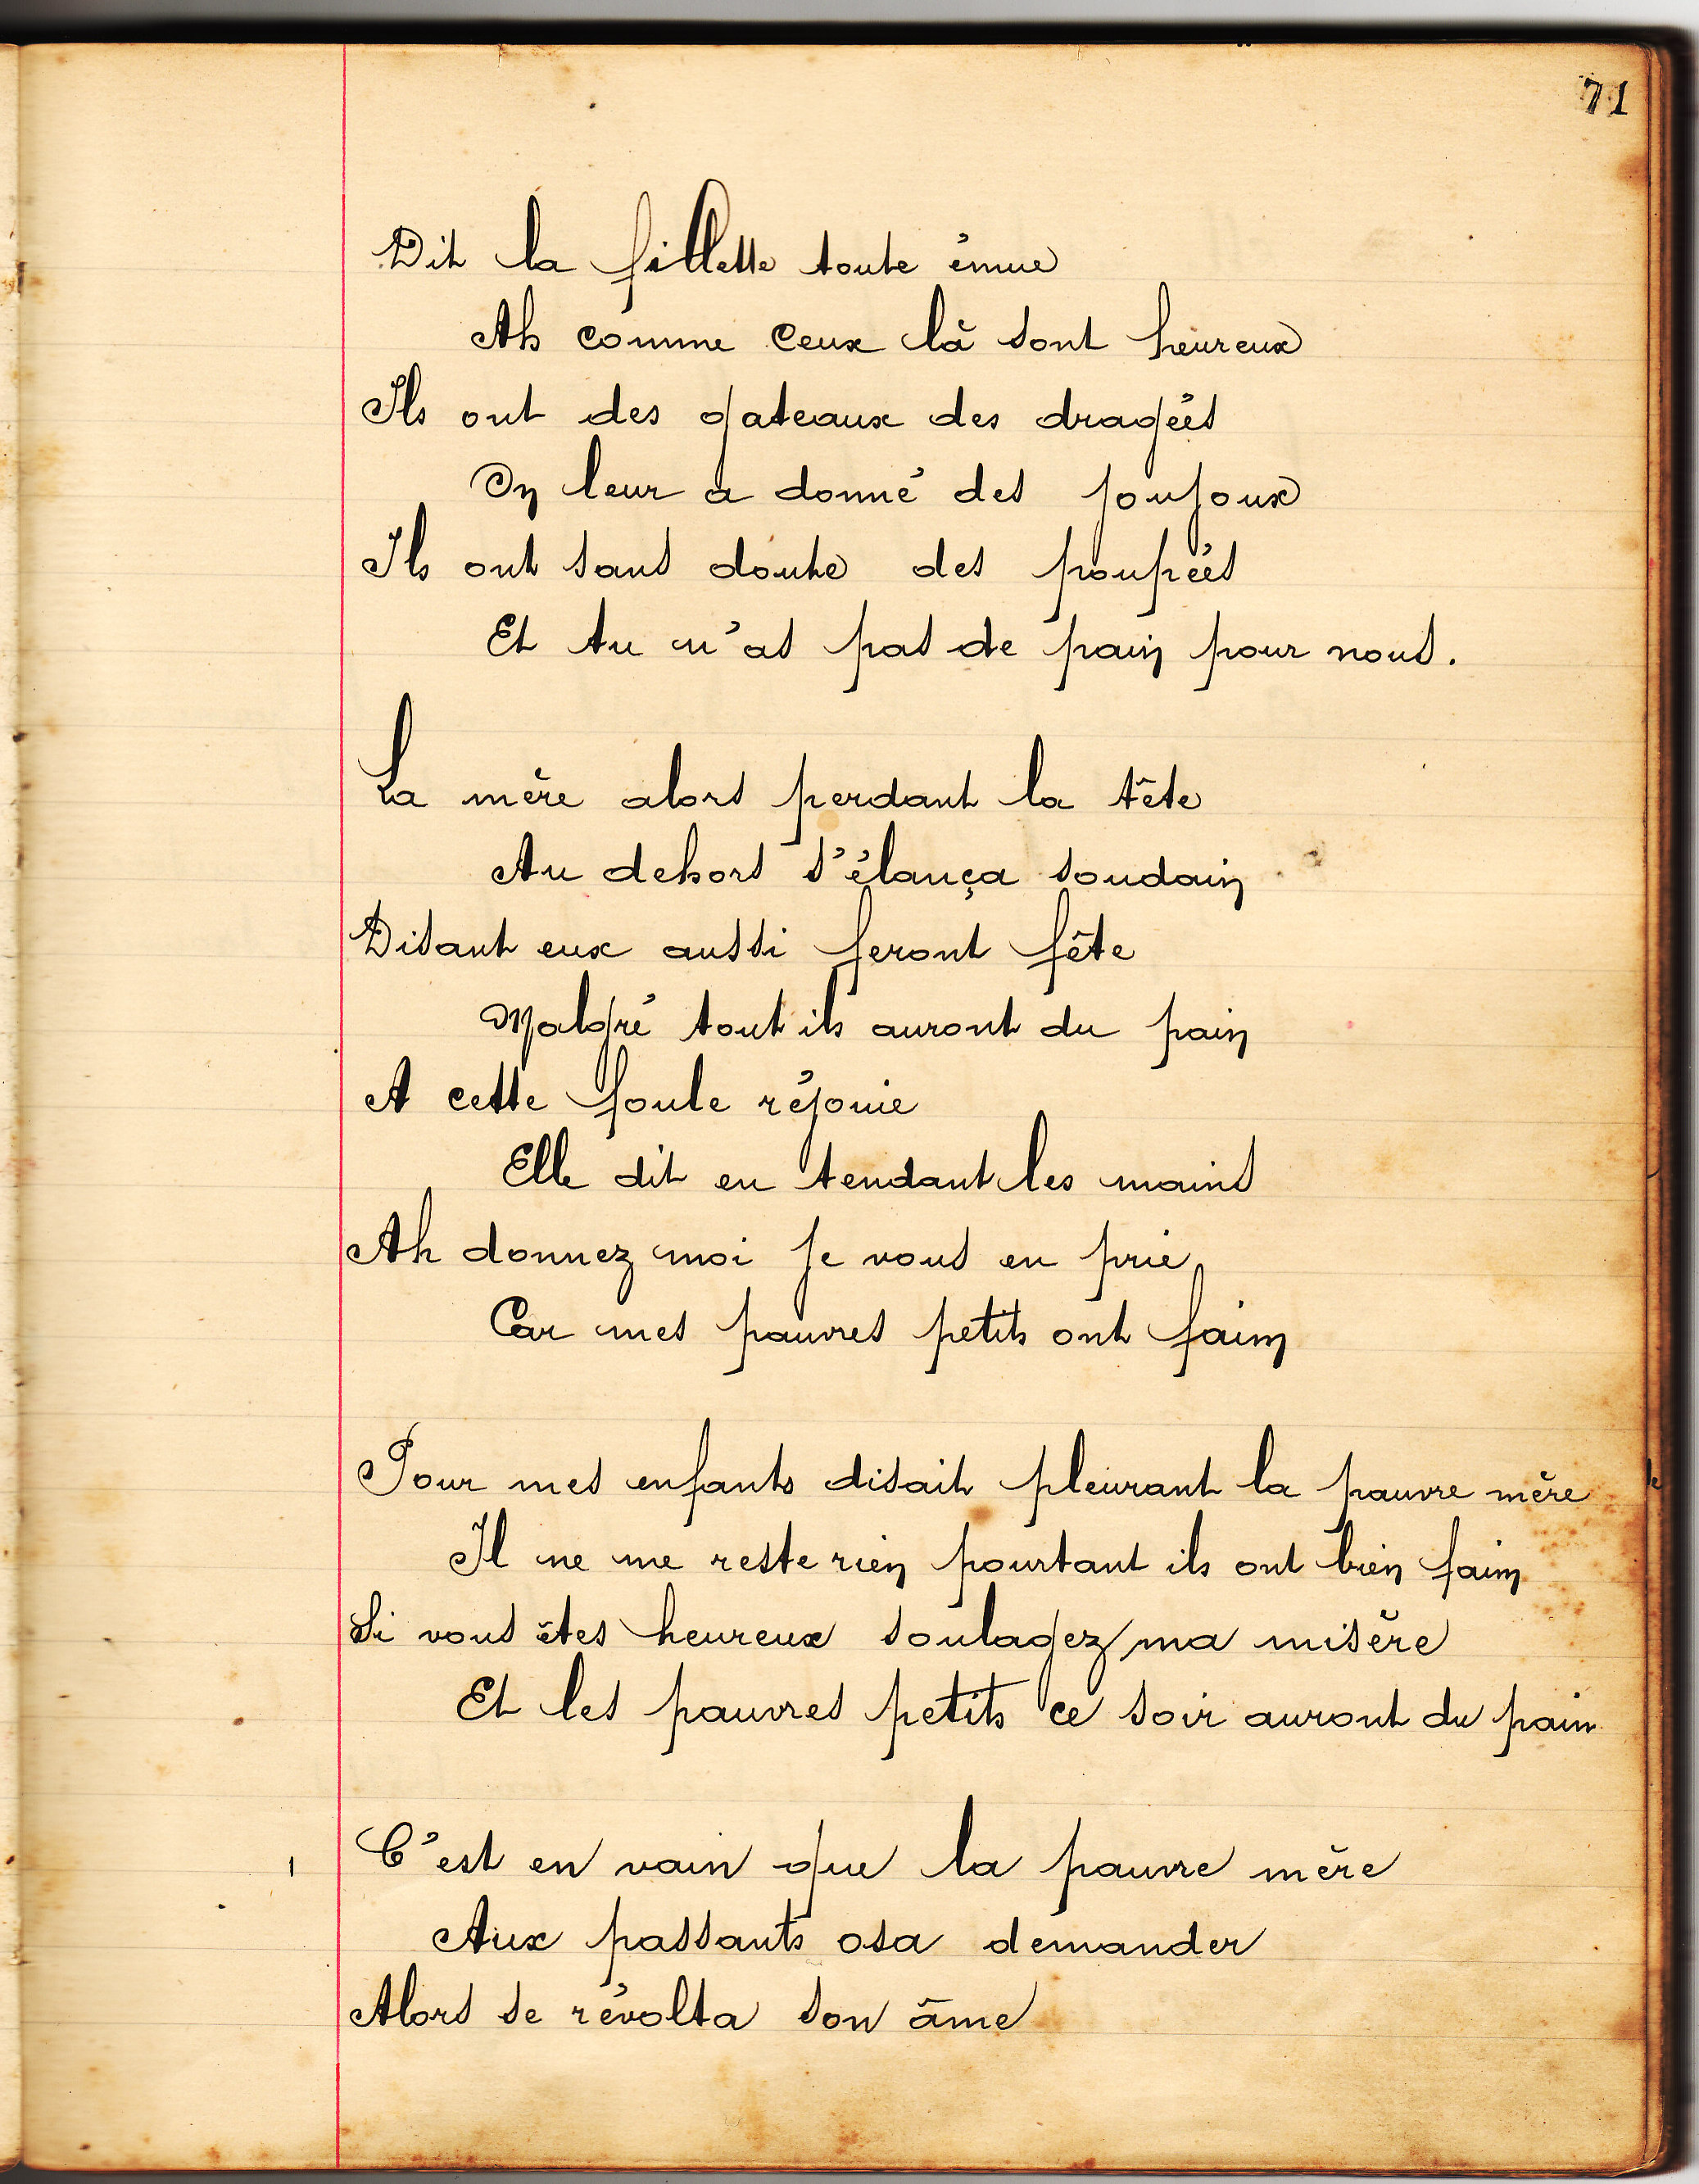 71
Dit la fillette toute émue
Ah comme ceux là sont heureux
Ils ont des gateaux des dragées
On leur a donné des joujoux
Ils ont sans doute des poupées
Et tu n'as pas de pain pour nous.
La mère alors perdant la tête
Au dehors s'élança soudain
Disant eux aussi feront fête
Malgré tout ils auront du pain
A cette foule réjouie
Elle dit en tendant les mains
Ah donnez moi je vous en prie
Car mes pauvres petits ont faim
Pour mes enfants disait pleurant la pauvre mère
Il ne me reste rien pourtant ils ont bien faim
Si vous êtes heureux soulagez ma misère
Et les pauvres petits ce soir auront du pain
C'est en vain que la pauvre mère
Aux passants osa demander
Alors se révolta son âme